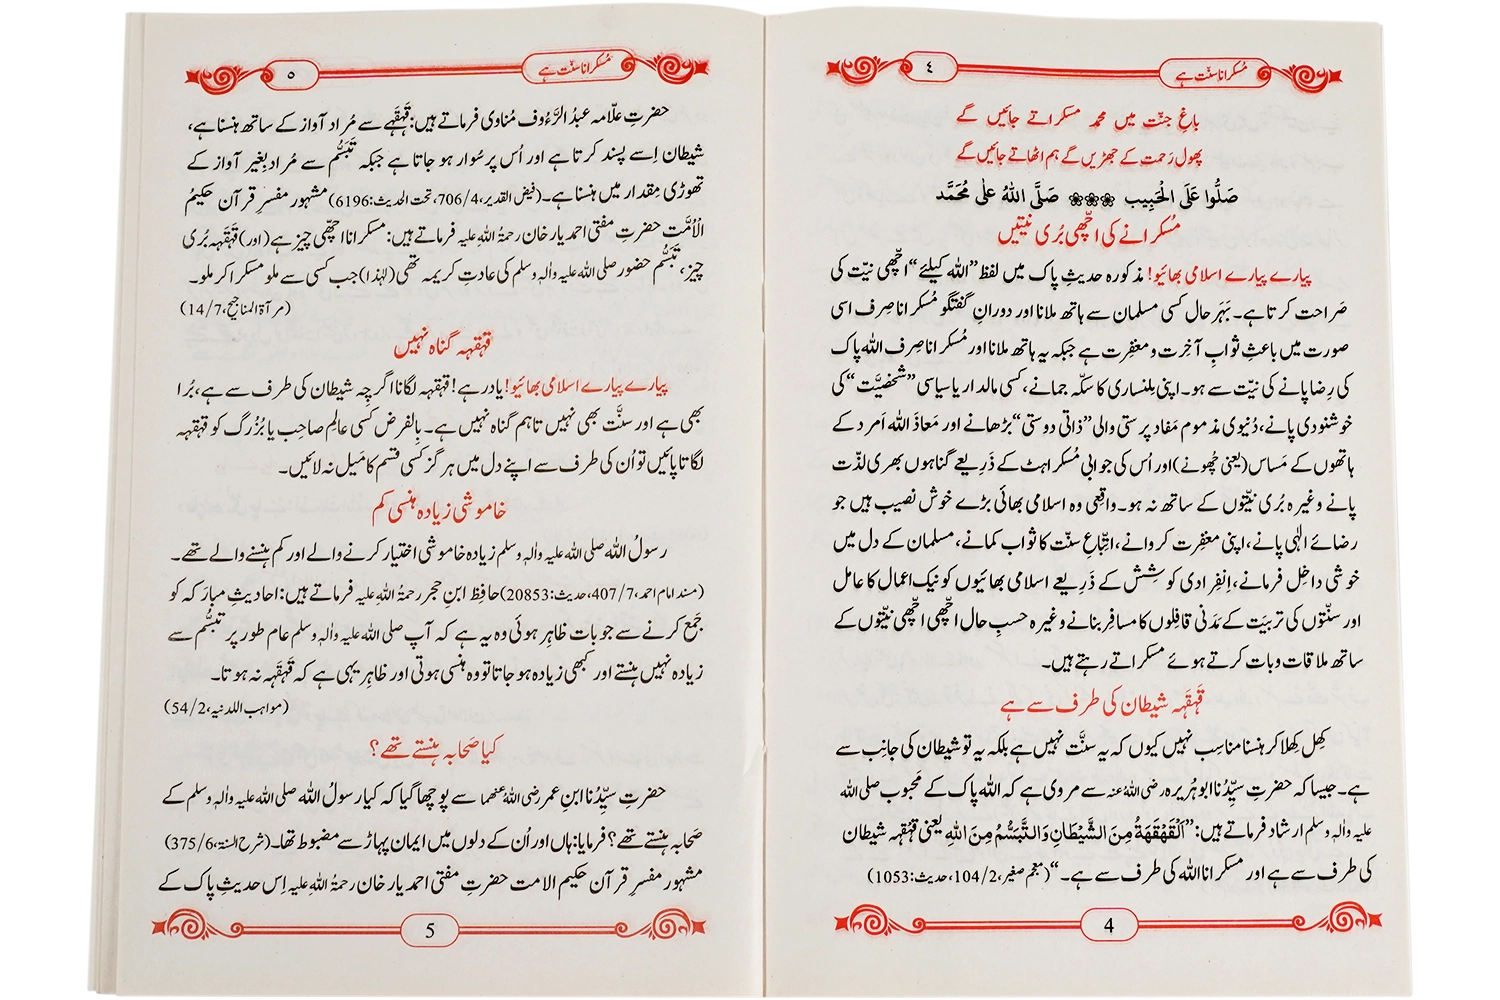 مُسکرانا سنّت ہے
٤
باغِ جنّت میں محمد مسکراتے جائیں گے
پھول رَحمت کے جھڑیں گے ہم اٹھاتے جائیں گے
صَلُّوا عَلَی الْحَبِیب ❀❀❀ صَلَّی اللهُ عَلٰی مُحَمَّد
مُسکرانے کی اچّھی بُری نیّتیں
پیارے پیارے اسلامی بھائیو! مذکورہ حدیثِ پاک میں لفظ ”اللہ کیلئے“ اچّھی نیّت کی
صَراحت کرتا ہے۔ بَہَر حال کسی مسلمان سے ہاتھ ملانا اور دورانِ گفتگو مُسکرانا صِرف اسی
صورت میں باعثِ ثوابِ آخِرت و مغفِرت ہے جبکہ یہ ہاتھ ملانا اور مُسکرانا صِرف اللہ پاک
کی رِضا پانے کی نیّت سے ہو۔ اپنی مِلنساری کا سکّہ جمانے، کسی مالدار یا سیاسی ”شخصیَّت“ کی
خوشنودی پانے، دُنیوی مذموم مَفاد پرستی والی ”ذاتی دوستی“ بڑھانے اور مَعاذَ اللہ اَمرد کے
ہاتھوں کے مَساس (یعنی چُھونے) اور اُس کی جوابی مُسکراہٹ کے ذَرِیعے گناہوں بھری لذّت
پانے وغیرہ بُری نیّتوں کے ساتھ نہ ہو۔ واقِعی وہ اسلامی بھائی بڑے خوش نصیب ہیں جو
رضائے الٰہی پانے، اپنی مغفِرت کروانے، اتِّباعِ سنّت کا ثواب کمانے، مسلمان کے دل میں
خوشی داخِل فرمانے، اِنفِرادی کوشِش کے ذَرِیعے اسلامی بھائیوں کو نیک اعمال کا عامل
اور سنّتوں کی تربیّت کے مَدَنی قافِلوں کا مسافِر بنانے وغیرہ حسبِ حال اچّھی اچّھی نیّتوں کے
ساتھ ملاقات و بات کرتے ہوئے مسکراتے رہتے ہیں۔
قَہقَہہ شیطان کی طرف سے ہے
کِھل کِھلا کر ہنسنا مناسِب نہیں کیوں کہ یہ سنَّت نہیں ہے بلکہ یہ تو شیطان کی جانِب سے
ہے۔ جیسا کہ حضرتِ سیِّدُنا ابوہُریرہ رضی اللہُ عنہ سے مروی ہے کہ اللہ پاک کے مَحبوب صلی اللہ
علیہ والہٖ وسلم ارشاد فرماتے ہیں: ”اَلْقَهْقَهَةُ مِنَ الشَّيْطَانِ وَالتَّبَسُّمُ مِنَ اللهِ یعنی قہقہہ شیطان
کی طرف سے ہے اور مسکرانا اللہ کی طرف سے ہے۔“ (معجم صغیر، 2/104، حدیث: 1053)
4
مُسکرانا سنّت ہے
٥
حضرتِ علّامہ عبدُ الرَّءُوف مُناوی فرماتے ہیں: قَہقَہے سے مُراد آواز کے ساتھ ہنسنا ہے،
شیطان اِسے پسند کرتا ہے اور اُس پر سُوار ہو جاتا ہے جبکہ تَبَسُّم سے مُراد بِغیر آواز کے
تھوڑی مِقدار میں ہنسنا ہے۔ (فیض القدیر، 4/706، تحت الحدیث: 6196) مشہور مفسرِ قرآن حکیمُ
الاُمَّت حضرتِ مفتی احمد یار خان رحمۃُ اللہِ علیہ فرماتے ہیں: مسکرانا اچھی چیز ہے (اور) قَہقَہہ بُری
چیز، تَبَسُّم حضور صلی اللہ علیہ والہٖ وسلم کی عادتِ کریمہ تھی (لہٰذا) جب کسی سے ملو مسکرا کر ملو۔
(مرآۃ المناجیح، 7/14)
قہقہہ گناہ نہیں
پیارے پیارے اسلامی بھائیو! یاد رہے! قہقہہ لگانا اگرچِہ شیطان کی طرف سے ہے، بُرا
بھی ہے اور سنَّت بھی نہیں تاہم گناہ نہیں ہے۔ بِالفرض کسی عالم صاحِب یا بُزُرگ کو قہقہہ
لگاتا پائیں تو اُن کی طرف سے اپنے دل میں ہر گز کسی قسم کا مَیل نہ لائیں۔
خاموشی زیادہ ہنسی کم
رسولُ اللہ صلی اللہ علیہ والہٖ وسلم زیادہ خاموشی اختیار کرنے والے اور کم ہنسنے والے تھے۔
(مسند امام احمد، 7/407، حدیث: 20853) حافِظ ابنِ حجر رحمۃُ اللہِ علیہ فرماتے ہیں: احادیثِ مبارَکہ کو
جَمع کرنے سے جو بات ظاہِر ہوئی وہ یہ ہے کہ آپ صلی اللہ علیہ والہٖ وسلم عام طور پر تبسُّم سے
زیادہ نہیں ہنستے اور کبھی زیادہ ہو جاتا تو وہ ہنسی ہوتی اور ظاہِر یہی ہے کہ قَہقَہہ نہ ہوتا۔
(مواہب اللدنیہ، 2/54)
کیا صَحابہ ہنستے تھے؟
حضرتِ سیِّدُنا ابنِ عمر رضی اللہُ عنہما سے پوچھا گیا کہ کیا رسولُ اللہ صلی اللہ علیہ والہٖ وسلم کے
صَحابہ ہنستے تھے؟ فرمایا: ہاں اور اُن کے دلوں میں ایمان پہاڑ سے مضبوط تھا۔ (شرح السنۃ، 6/375)
مشہور مفسرِ قرآن حکیم الامت حضرتِ مفتی احمد یار خان رحمۃُ اللہِ علیہ اِس حدیثِ پاک کے
5